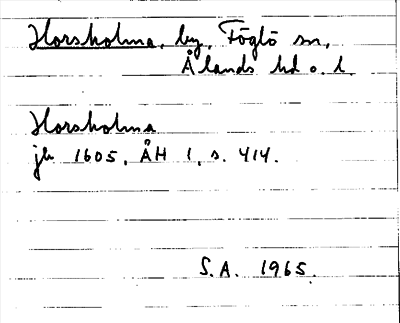 Horsholma, by, Föglö sn,
Ålands hd o. l.
Horsholma
jb 1605, ÅH 1, s. 414.
S.A. 1965.